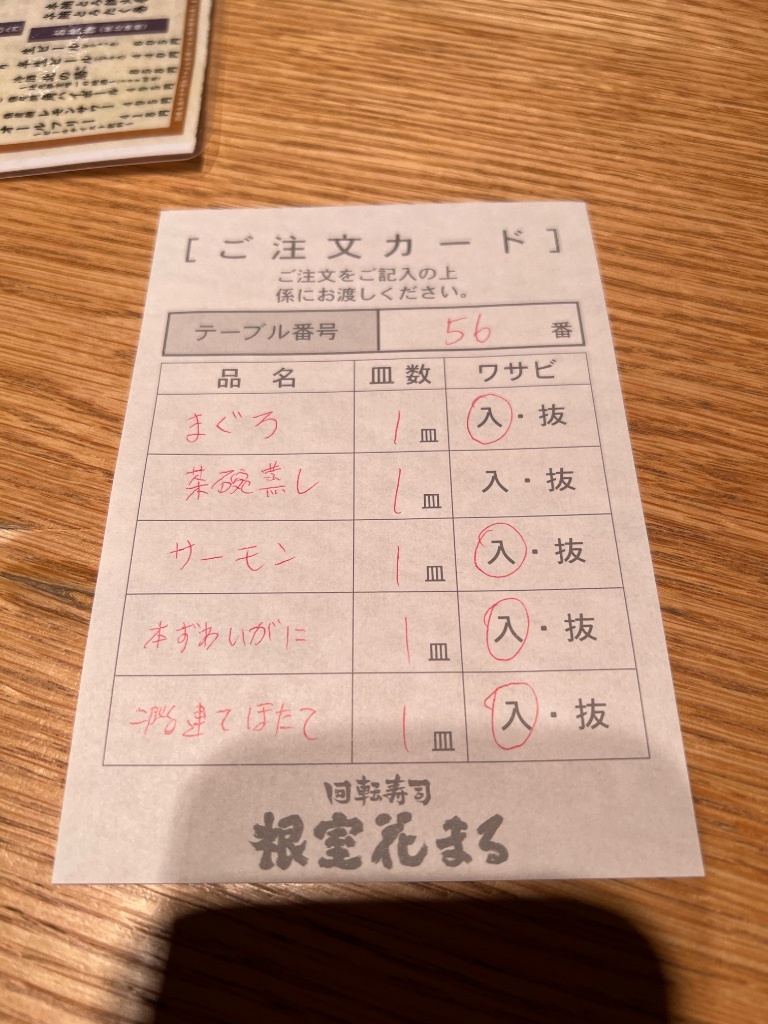 生ビール
レモンサワー
オールフリー
[ご注文カード]
ご注文をご記入の上
係にお渡しください。
テーブル番号 56 番
品名 皿数 ワサビ
まぐろ 1皿 入・抜
茶碗蒸し 1皿 入・抜
サーモン 1皿 入・抜
本ずわいがに 1皿 入・抜
二階建てほたて 1皿 入・抜
回転寿司
根室花まる